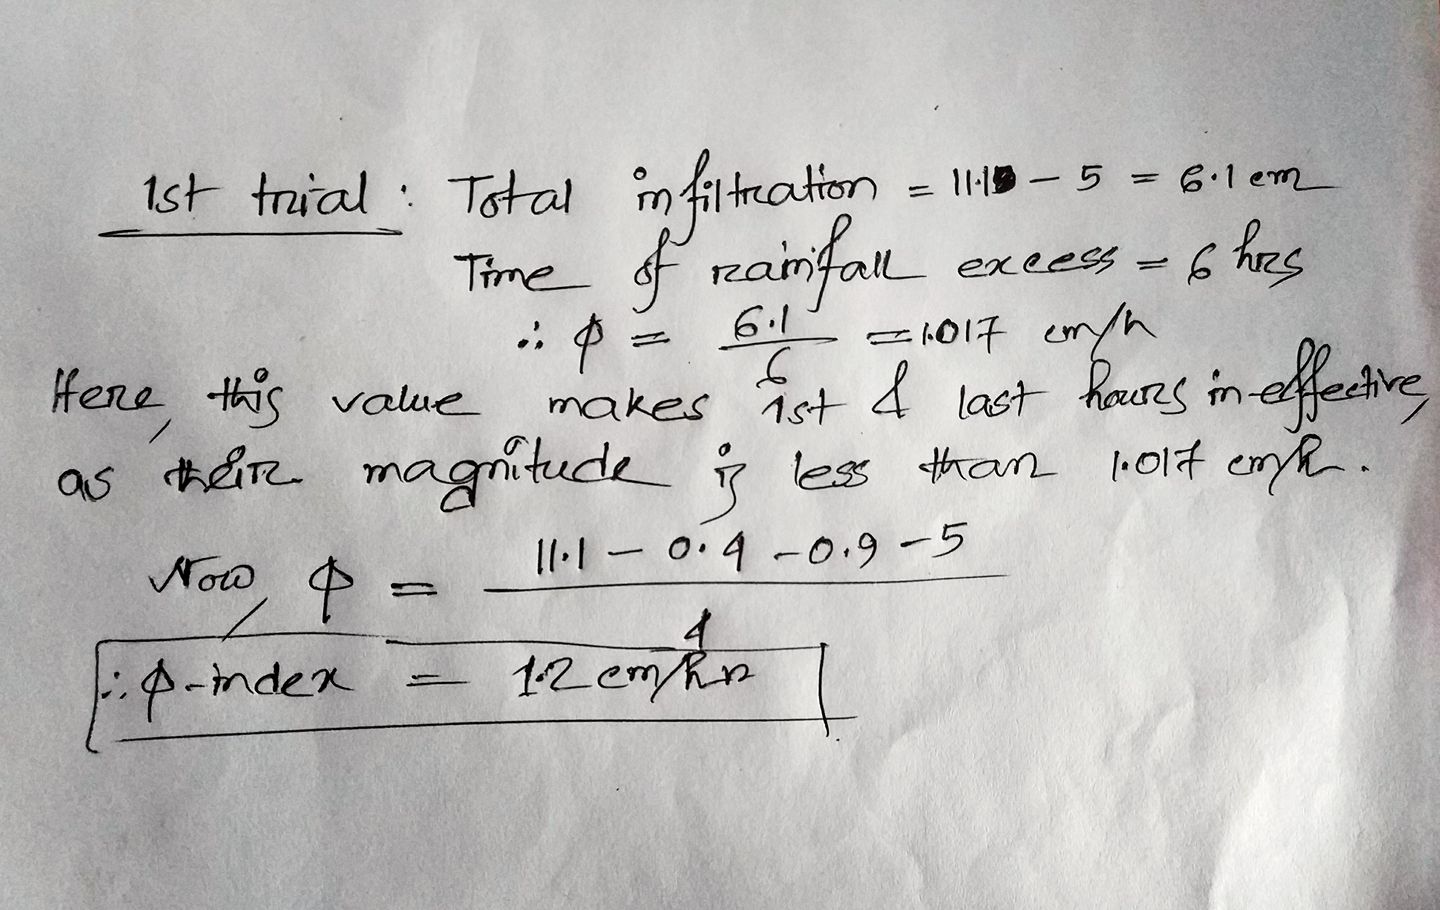 1st trial : Total infiltration = 11.1 - 5 = 6.1 cm
Time of rainfall excess = 6 hrs
∴ φ = 6.1/6 = 1.017 cm/h
Here, this value makes 1st & last hours in-effective,
as their magnitude is less than 1.017 cm/h.
Now, φ = (11.1 - 0.4 - 0.9 - 5)/4
∴ φ-index = 1.2 cm/hr